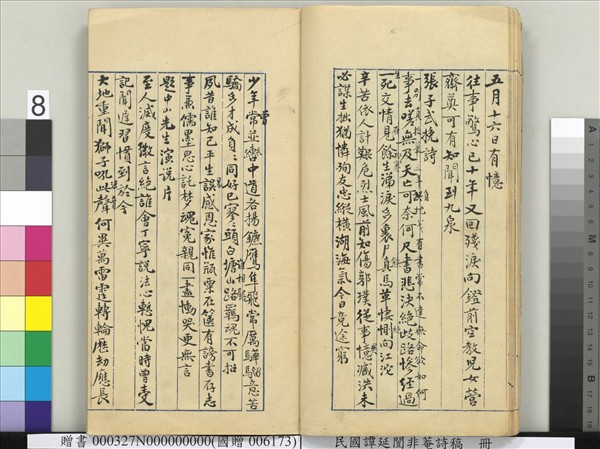 五月十六日有憶
往事驚心已十年又回殘淚向鐙前空教兒女營
齋奠可有知聞到九泉
張子武挽詩
事去嗟無及天亡可奈何尺書悲決絕歧路慘經過
一死交情見餘生涕淚多裹尸真馬革悽惻向江沱
辛苦依人計艱危烈士風前知傷郭璞從事憶臧洪未
必謀生拙猶憐殉友忠縱橫湖海氣今日竟途窮
少年常並轡中道各揚鑣鷹隼飛常厲驊騮意苦
驕多才成自同好已寥頭白塘山路羈魂不可招
夙昔誰知己平生誤感恩家惟瓶粟在篋有謗書存志
事兼儒墨思心託夢魂寃親同一盡慟哭更無言
題中山先生演說片
至人滅度微言絕誰會丁寧說法心慙愧當時曾受
記聞追習慣到於今
大地重聞獅子吼此聲何異萬雷霆轉輪歷劫應長
8
贈書 000327N000000000(國贈 006173)
民國譚延闓非菴詩稿 冊